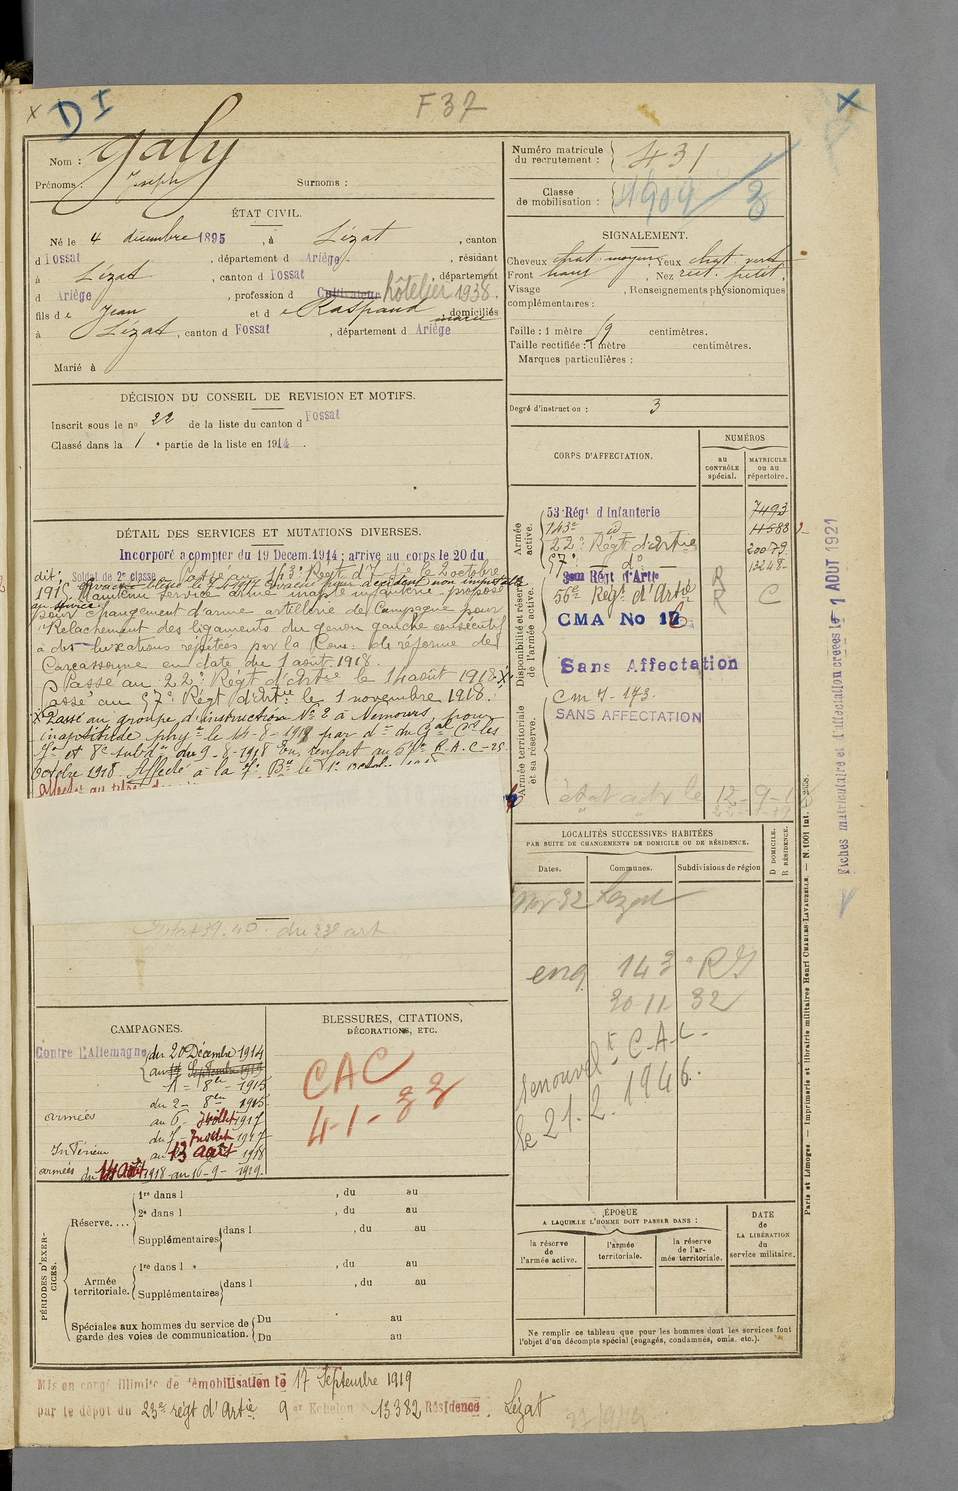 D I
F 37
Nom : Galy
Prénoms : Joseph Surnoms :
ÉTAT CIVIL.
Né le 4 décembre 1895, à Lézat, canton
d Fossat, département d Ariège, résidant
à Lézat, canton d Fossat, département
d Ariège, profession d Cultivateur hôtelier 1938.
fils de Jean et de Raspaud Marie domiciliés
à Lézat, canton d Fossat, département d Ariège
Marié à
DÉCISION DU CONSEIL DE REVISION ET MOTIFS.
Inscrit sous le no 22 de la liste du canton d Fossat
Classé dans la 1e partie de la liste en 1914.
DÉTAIL DES SERVICES ET MUTATIONS DIVERSES.
Incorporé à compter du 19 Décem. 1914 ; arrivé au corps le 20 du
dit; Soldat de 2e classe. Passé au 143e Régt d'Ie le 2 octobre
1915.
Maintenu service armé inapte infanterie proposé
pour changement d'arme artillerie de Campagne pour
"Relachement des ligaments du genou gauche consécutif
à des luxations répétées par la Con de réforme de
Carcassonne en date du 1 août 1918.
Passé au 22e Régt d'Artie le 14 août 1918 X
Passé au 57e Régt d'Artie le 1 novembre 1918.
X Passé au groupe d'instruction No 2 à Nemours, pour
inaptitude phyque le 14-8-1918 par don du Gal Ct les
du 9-8-1918 En renfort au 57e R.A.C-25
Octobre 1918. Affecté à la 7e Bie le
39.40. du 23e art
CAMPAGNES.
Contre l'Allemagne du 20 Décembre 1914
au 14 Septembre 1919
1 - 8bre - 1915
du 2 - 8bre 1915
armées au 6 - Juillet 1917
du 7 - Juillet 1917
Intérieur au 13 août 1918
armées du 14 Août 1918 au 16-9-1919.
BLESSURES, CITATIONS,
DÉCORATIONS, ETC.
CAC
4-1-33
PÉRIODES D'EXERCICES.
Réserve....
1re dans l , du au
2e dans l , du au
Supplémentaires dans l , du au
Armée territoriale.
1re dans l , du au
Supplémentaires dans l , du au
Spéciales aux hommes du service de garde des voies de communication.
Du au
Du au
Mis en congé illimité de démobilisation le 17 Septembre 1919
par le dépôt du 23e régt d'Artie 9e Echelon 13382 Résidence. Lézat
Numéro matricule du recrutement : 431
Classe de mobilisation : 1909
SIGNALEMENT.
Cheveux chat. moyen, Yeux chat. vert
Front haut, Nez rect. petit.
Visage , Renseignements physionomiques
complémentaires :
Taille : 1 mètre 19 centimètres.
Taille rectifiée : 1 mètre centimètres.
Marques particulières :
Degré d'instruction : 3
CORPS D'AFFECTATION.
NUMÉROS
au CONTRÔLE spécial.
MATRICULE ou au répertoire.
Armée active.
53 Régt d'Infanterie 7493
143e id 11588
22e Régt d'Artie 20079
57e do 13248
Disponibilité et réserve de l'armée active.
Régt d'Artie R
56e Régt d'Artie R C
CMA No 17
Sans Affectation
Cm 7-173.
SANS AFFECTATION
Armée territoriale et sa réserve.
LOCALITÉS SUCCESSIVES HABITÉES
PAR SUITE DE CHANGEMENTS DE DOMICILE OU DE RÉSIDENCE.
Dates. Communes. Subdivisions de région
D DOMICILE. R RÉSIDENCE.
Nov 32 Lézat
eng 143e RI
30-11 32
Renouvelt C-A-C-
le 21.2.1946.
ÉPOQUE
A LAQUELLE L'HOMME DOIT PASSER DANS :
la réserve de l'armée active.
l'armée territoriale.
la réserve de l'armée territoriale.
DATE de LA LIBÉRATION du service militaire.
Ne remplir ce tableau que pour les hommes dont les services font
l'objet d'un décompte spécial (engagés, condamnés, omis, etc.).
Fiches matriculaire et d'affectation créées le 1 AOUT 1921
Paris et Limoges. — Imprimerie et librairie militaires Henri CHARLES-LAVAUZELLE. — N. 1001 Int.